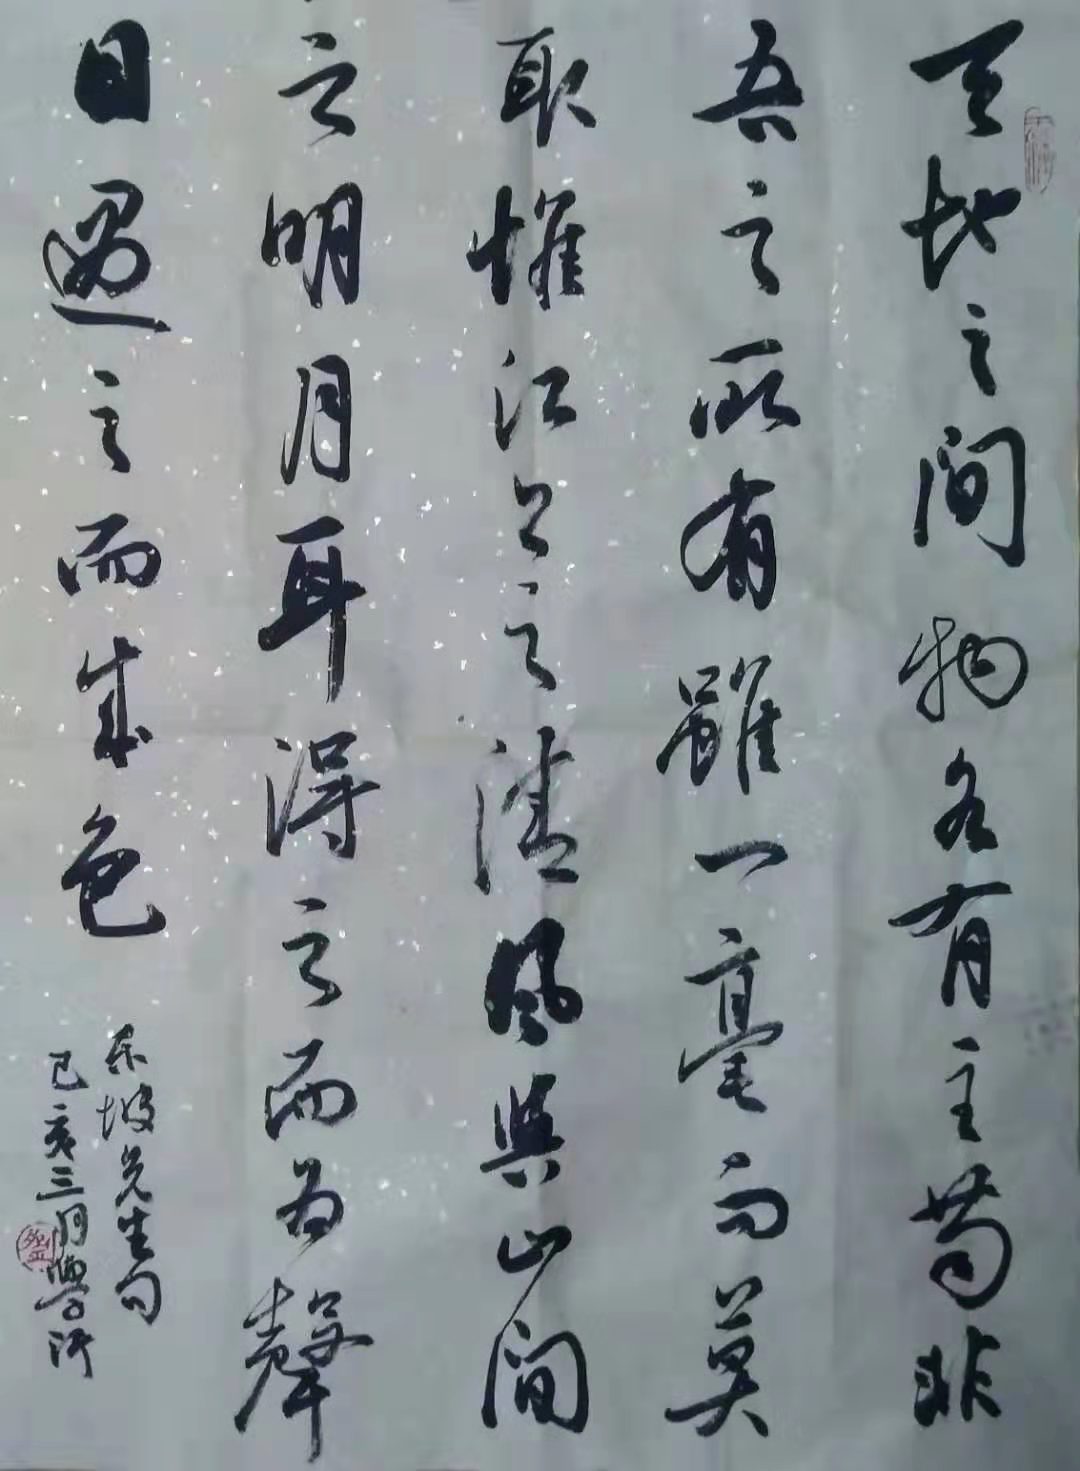 天地之間物各有主苟非
吾之所有雖一毫而莫
取惟江上之清風與山間
之明月耳得之而為聲
目遇之而成色
东坡先生句
己亥三月學
劉